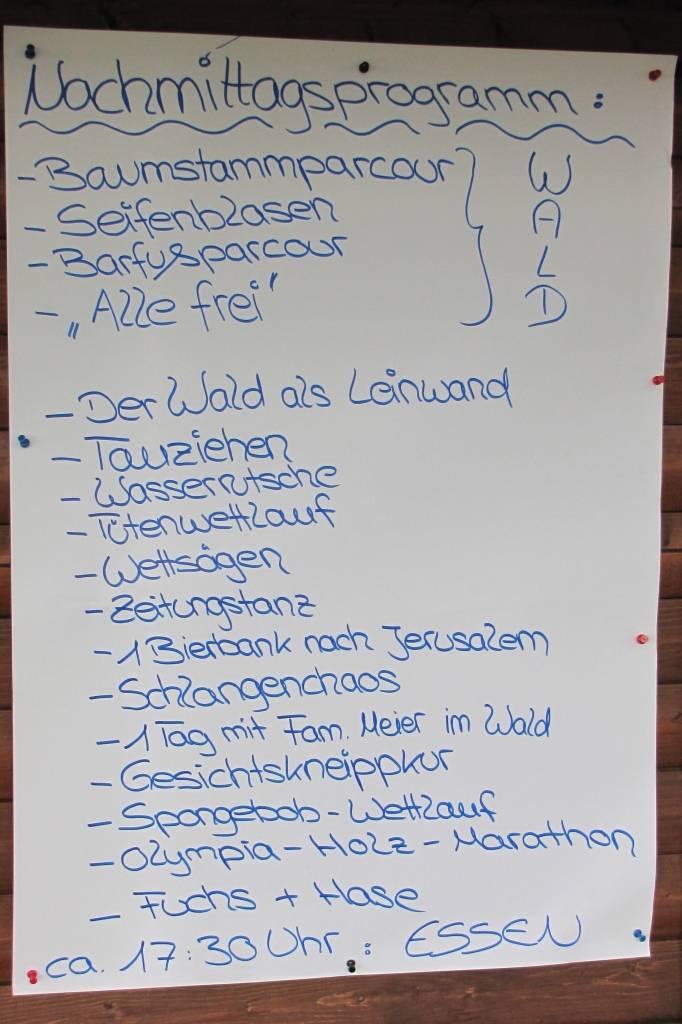 Nachmittagsprogramm:
- Baumstammparcour
- Seifenblasen
- Barfußparcour
- „Alle frei“
W
A
L
D
- Der Wald als Leinwand
- Tauziehen
- Wasserrutsche
- Tütenwettlauf
- Wettsägen
- Zeitungstanz
- 1 Bierbank nach Jerusalem
- Schlangenchaos
- 1 Tag mit Fam. Meier im Wald
- Gesichtskneippkur
- Spongebob-Wettlauf
- Olympia-Holz-Marathon
- Fuchs + Hase
ca. 17:30 Uhr: ESSEN